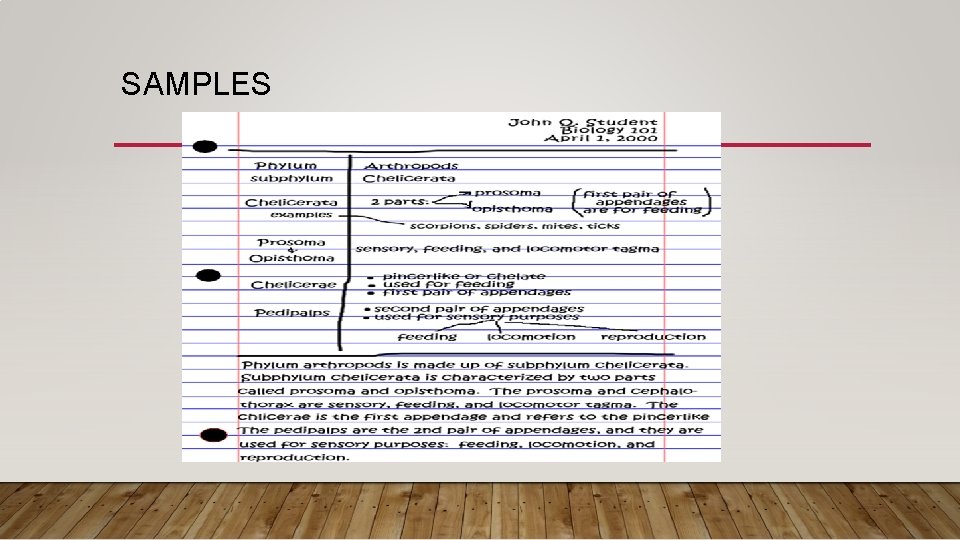 SAMPLES
John Q. Student
Biology 101
April 1, 2000
Phylum Arthropods
subphylum Chelicerata
Chelicerata 2 parts: prosoma opisthoma (first pair of appendages are for feeding)
examples scorpions, spiders, mites, ticks
Prosoma & Opisthoma sensory, feeding, and locomotor tagma
Chelicerae
• pincerlike or chelate
• used for feeding
• first pair of appendages
Pedipalps
• second pair of appendages
• used for sensory purposes
feeding locomotion reproduction
Phylum arthropods is made up of subphylum chelicerata.
Subphylum chelicerata is characterized by two parts
called prosoma and opisthoma. The prosoma and cephalo-
thorax are sensory, feeding, and locomotor tagma. The
chlicerae is the first appendage and refers to the pincerlike
The pedipalps are the 2nd pair of appendages, and they are
used for sensory purposes: feeding, locomotion, and
reproduction.